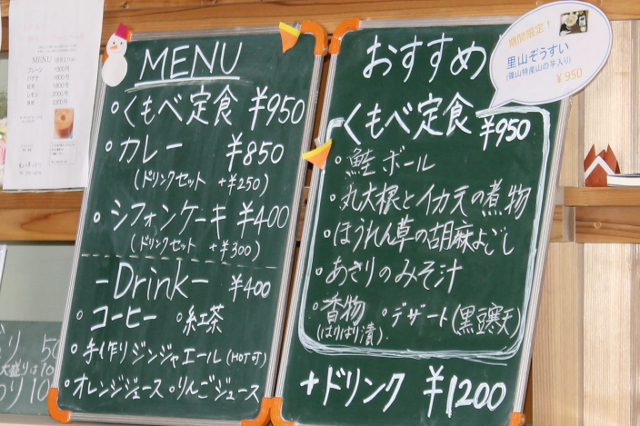 MENU
・くもべ定食 ¥950
・カレー ¥850
(ドリンクセット +¥250)
・シフォンケーキ ¥400
(ドリンクセット +¥300)
-Drink- ¥400
・コーヒー ・紅茶
・手作りジンジャエール(HOT可)
・オレンジジュース ・りんごジュース
おすすめ
くもべ定食 ¥950
・鮭ボール
・丸大根とイカ元の煮物
・ほうれん草の胡麻よごし
・あさりのみそ汁
・香物 ・デザート(黒豆寒天)
(はりはり漬)
+ドリンク ¥1200
期間限定!
里山ぞうすい
(篠山特産山の芋入り)
¥950
MENU